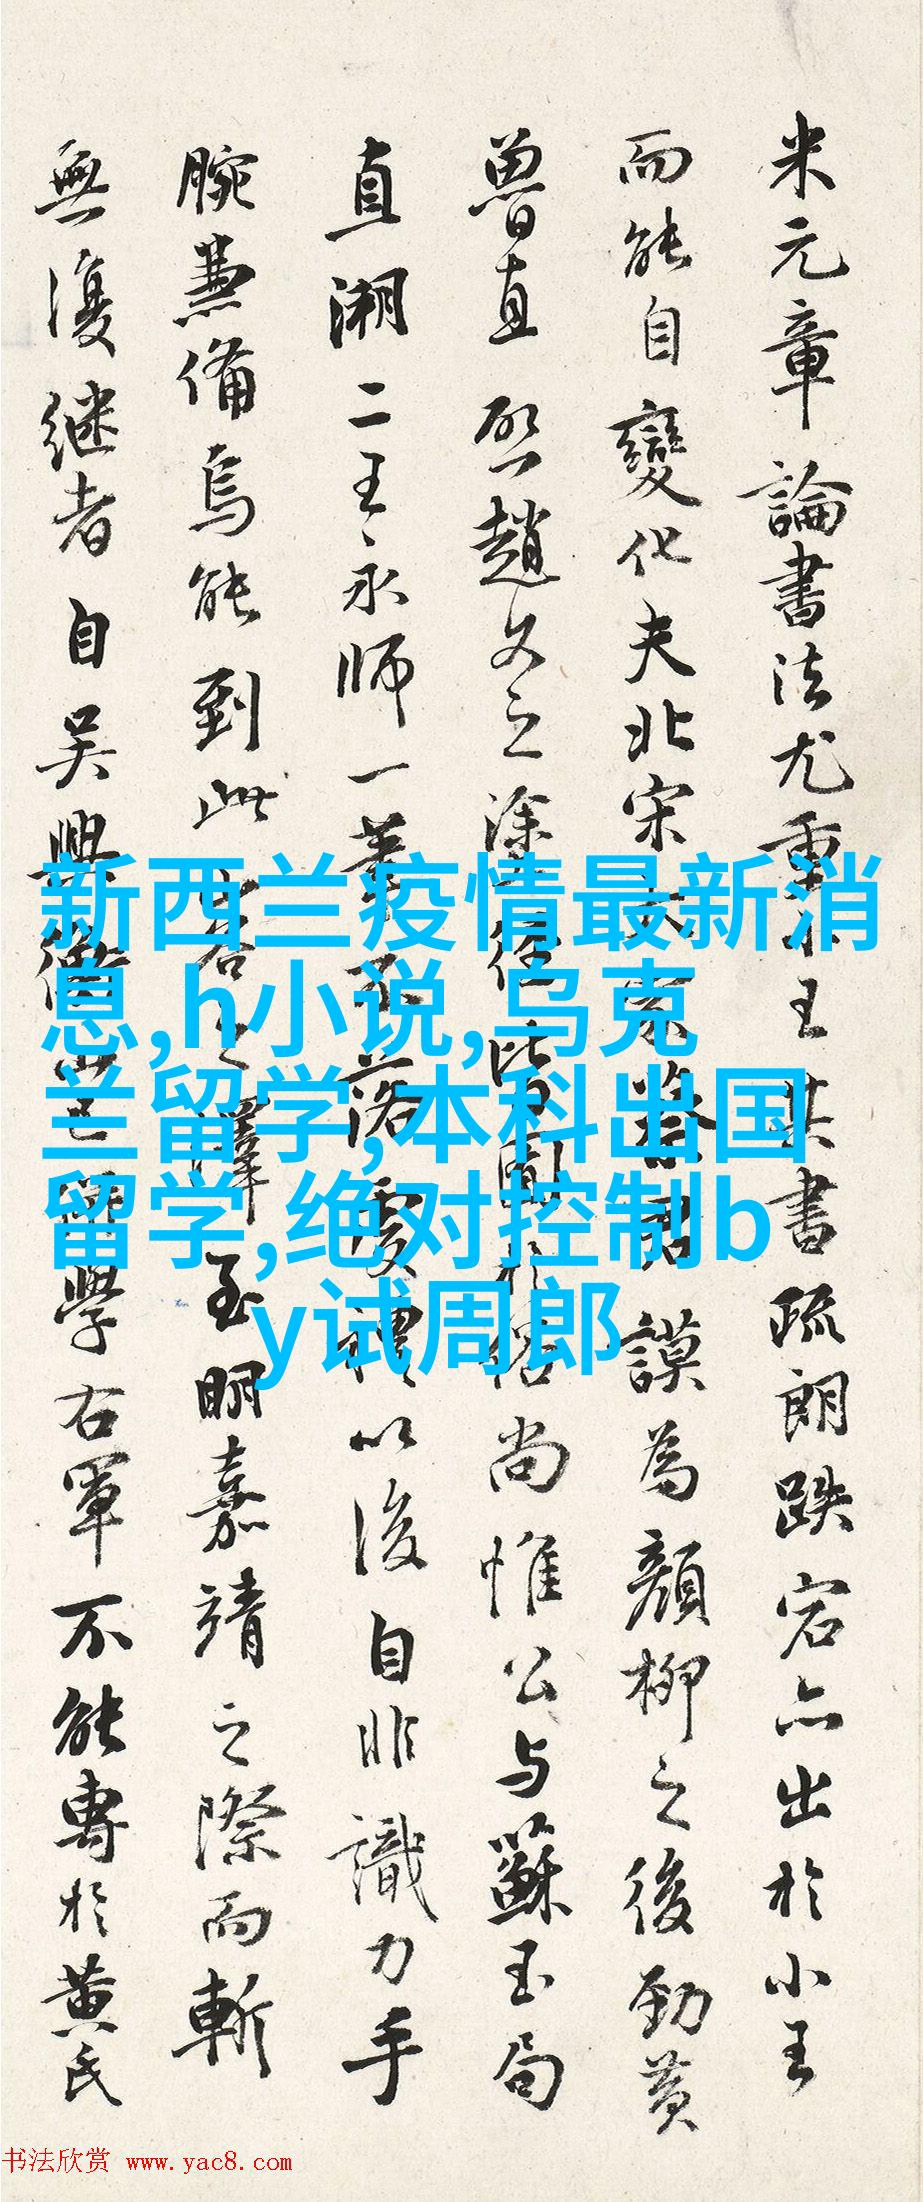 米元章論書法尤重小王其書疏朗跌宕亦出於小王
而能自變化夫北宋
謨為顏柳之後勁黄
魯直
趙文之塗徑皆
尚惟公与蘇玉局
直溯二王永師一筆不落
以後自非識力手
腕兼備烏能到此
至明嘉靖之際而斬
無復继者自吴興
學右軍不能專於黄氏
新西兰疫情最新消
息,h小说,乌克
兰留学,本科出国
留学,绝对控制b
y试周郎
书法欣赏 www.yac8.com